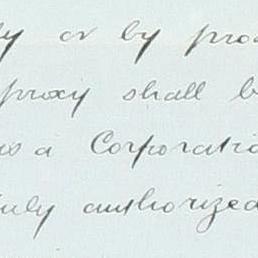 ly or by prox
proxy shall b
is a Corporatio
uly authorized